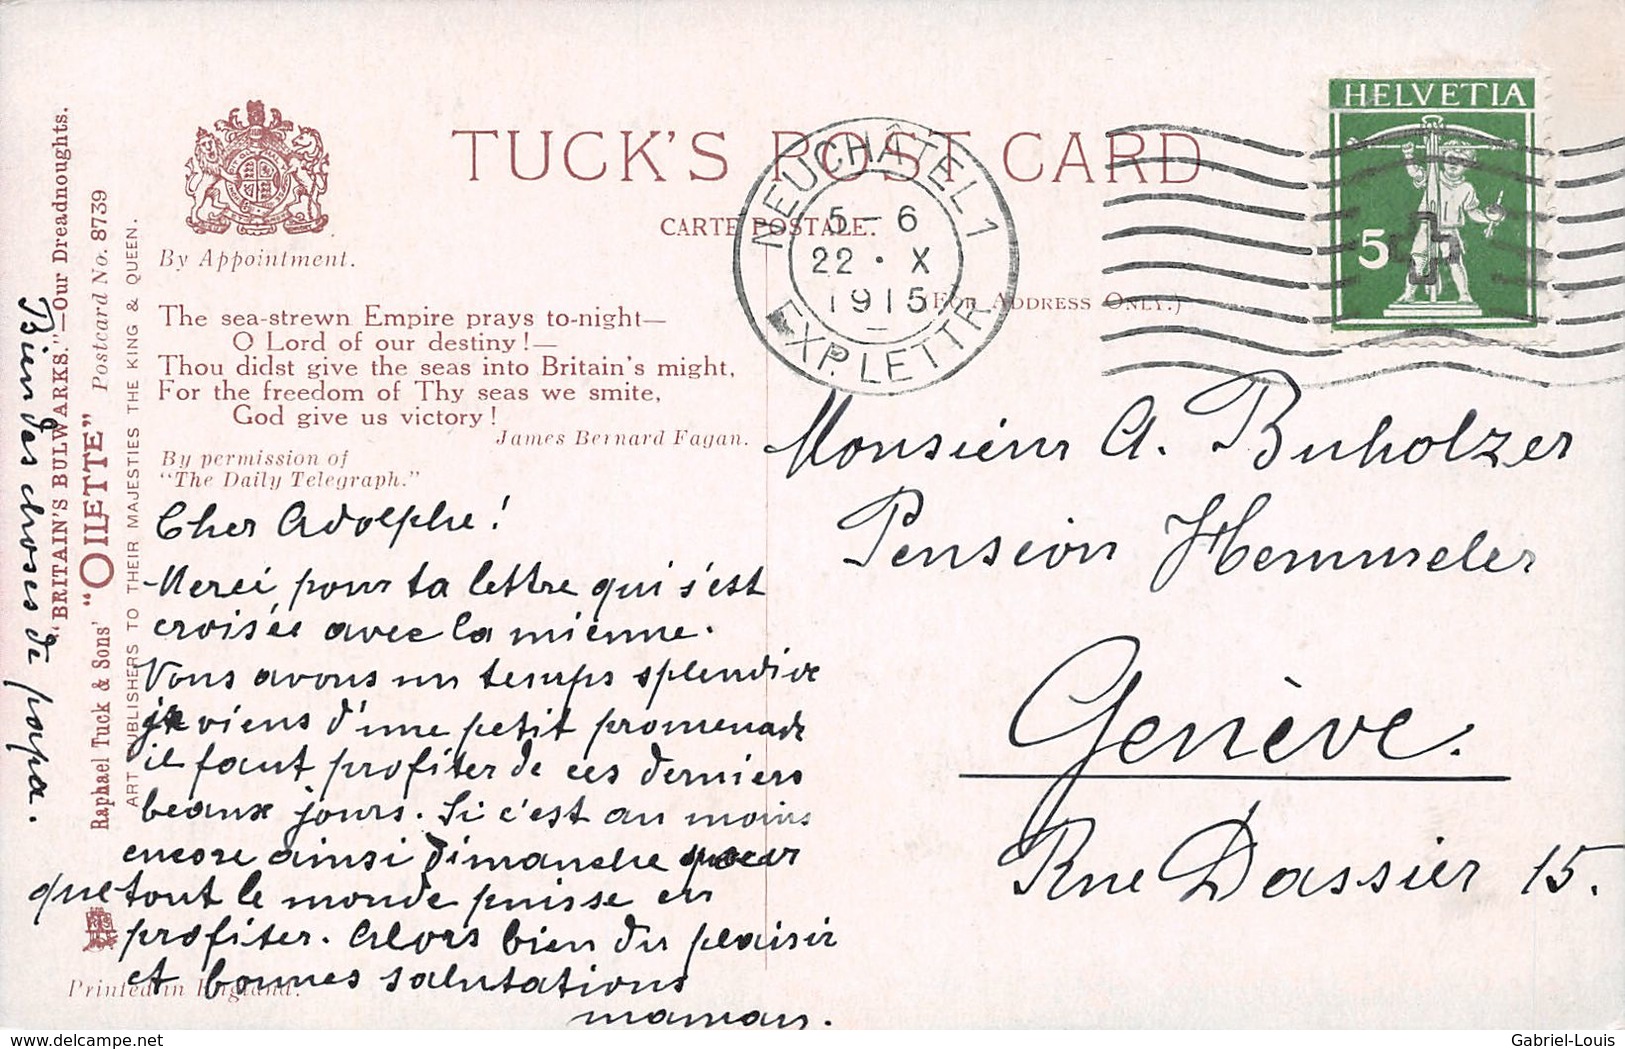 TUCK'S POST CARD
CARTE POSTALE.
(FOR ADDRESS ONLY.)
By Appointment.
The sea-strewn Empire prays to-night—
O Lord of our destiny!—
Thou didst give the seas into Britain's might,
For the freedom of Thy seas we smite,
God give us victory!
James Bernard Fagan.
By permission of
"The Daily Telegraph."
"BRITAIN'S BULWARKS."—Our Dreadnoughts.
Raphael Tuck & Sons' "OILETTE" Postcard No. 8739
ART PUBLISHERS TO THEIR MAJESTIES THE KING & QUEEN.
Printed in England.
NEUCHÂTEL 1
5-6
22 · X
1915
EXP. LETTR.
HELVETIA
5
Cher Adolphe!
Merci pour ta lettre qui s'est
croisée avec la mienne.
Vous avons un temps splendide
je viens d'une petit promenade
il faut profiter de ces derniers
beaux jours. Si c'est au moins
encore ainsi dimanche pour
que tout le monde puisse en
profiter. Alors bien du plaisir
et bonnes salutations
maman.
Bien des choses de papa.
Monsieur A. Buholzer
Pension Hemmeler
Genève.
Rue Dassier 15.
delcampe.net
Gabriel-Louis